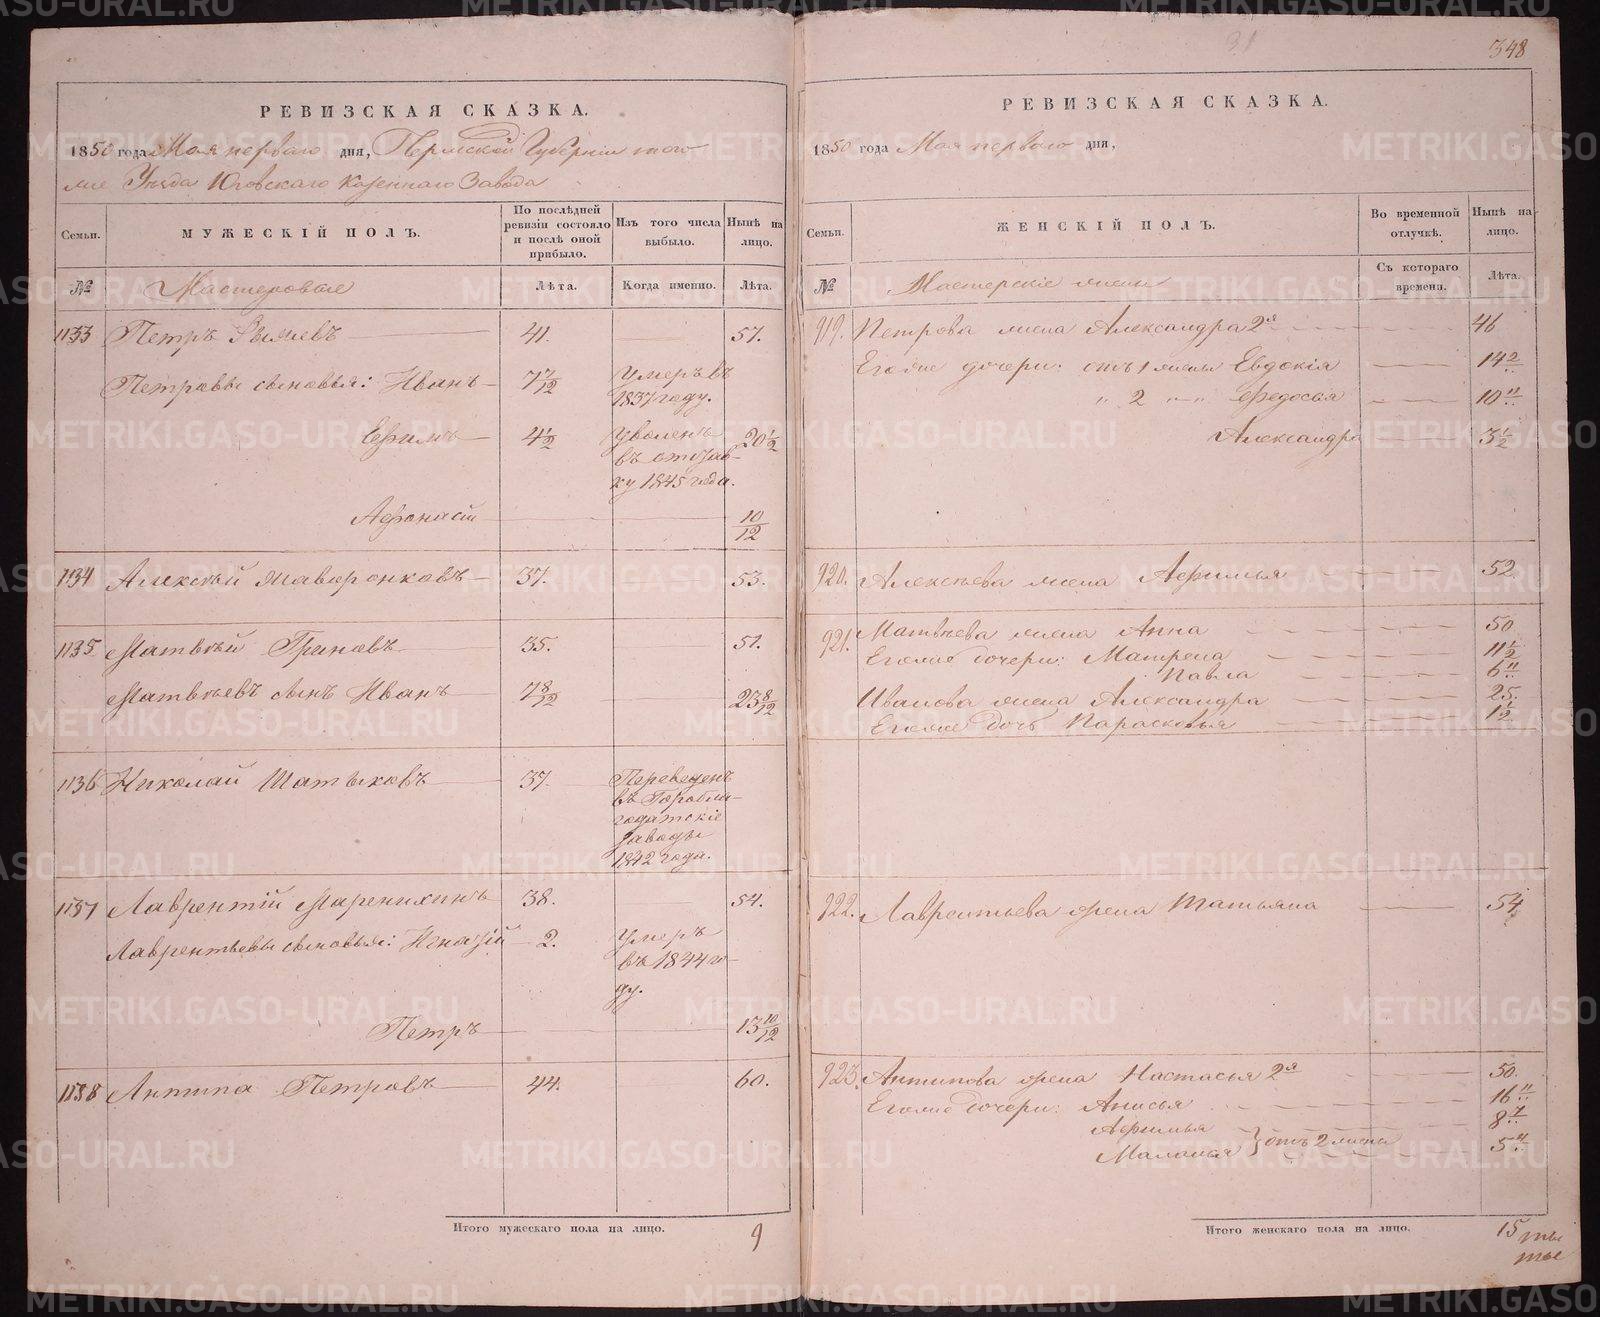 348
РЕВИЗСКАЯ СКАЗКА.
1850 года Мая перваго дня, Пермской Губерніи того
же Уѣзда Юговскаго Казеннаго Завода
Семьи.
МУЖЕСКІЙ ПОЛЪ.
По послѣдней ревизіи состояло и послѣ оной прибыло.
Изъ того числа выбыло.
Нынѣ на лицо.
№
Мастеровые
Лѣта.
Когда именно.
Лѣта.
1133 Петръ 41. 57.
Петровы сыновья: Иванъ 7 7/12 Умеръ въ
1837 году.
Ефимъ 4 1/2 Уволенъ 20 1/2
въ отстав-
ку 1845 года.
Афонасій 10/12
1134 Алексѣй Жаворонковъ 37. 53.
1135 Матвѣй Гриновъ 35. 51.
Матвѣевъ сынъ Иванъ 7 8/12 23 8/12
1136 Николай Шатыховъ 37. Переведенъ
въ Гороблаго-
годатскіе
заводы
1842 года.
1137 Лаврентій Маренихинъ 38. 54.
Лаврентьевы сыновья: Игнатій 2. Умеръ
въ 1844 го-
ду.
Петръ 13 10/12
1138 Антипа Петровъ 44. 60.
Итого мужескаго пола на лицо. 9
РЕВИЗСКАЯ СКАЗКА.
1850 года Мая перваго дня,
Семьи.
ЖЕНСКІЙ ПОЛЪ.
Во временной отлучкѣ.
Нынѣ на лицо.
№
Мастерскіе жены
Съ котораго времени.
Лѣта.
919. Петрова жена Александра 2я 46
Его же дочери: отъ 1 жены Евдокія 14 2/"
" 2 "—" Федосья 10 11/"
Александра 3 1/2
920. Алексѣева жена Афимья 52
921. Матвѣева жена Анна 50
Его же дочери: Матрена 11 1/2
Павла 6 11/"
Иванова жена Александра 25.
Его же дочь Парасковья 1 1/2
922. Лаврентьева жена Татьяна 54
923. Антипова жена Настасья 2я 50.
Его же дочери: Анисья 16 11/"
Афимья 8 7/"
Маланья } отъ 2 жены 5 4/"
Итого женскаго пола на лицо. 15
METRIKI.GASO-URAL.RU